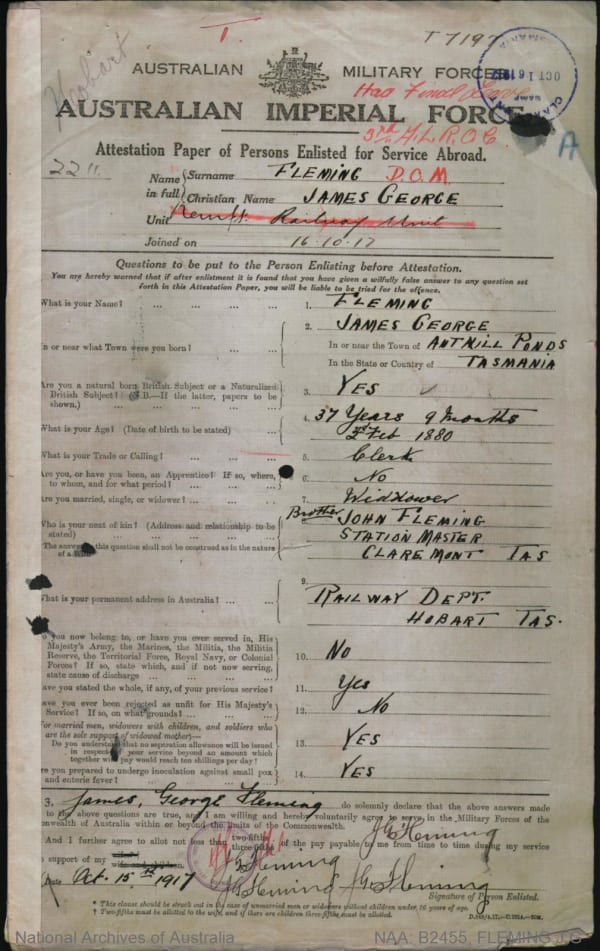 Hobart
T.
T7197
OCT 16 1917
AUSTRALIAN MILITARY FORCES
Had Final Leave
AUSTRALIAN IMPERIAL FORCE
A
Attestation Paper of Persons Enlisted for Service Abroad.
Name in full
Surname FLEMING D.C.M.
Christian Name JAMES GEORGE
Unit Reinfts. Railway Unit
Joined on 16.10.17
Questions to be put to the Person Enlisting before Attestation.
You are hereby warned that if after enlistment it is found that you have given a wilfully false answer to any question set
forth in this Attestation Paper, you will be liable to be tried for the offence.
What is your Name? ... ... 1. FLEMING
2. JAMES GEORGE
In or near what Town were you born? ... ... In or near the Town of ANTHILL PONDS
In the State or Country of TASMANIA
Are you a natural born British Subject or a Naturalized
British Subject? (N.B.—If the latter, papers to be
shown.) 3. YES
What is your Age? (Date of birth to be stated) ... 4. 37 Years 9 Months
Feb 1880
What is your Trade or Calling? ... ... 5. Clerk
Are you, or have you been, an Apprentice? If so, where,
to whom, and for what period? ... ... 6. No
Are you married, single, or widower? ... ... 7. Widower
Who is your next of kin? (Address and relationship to be
stated) Brother JOHN FLEMING
STATION MASTER
The answer to this question shall not be construed as in the nature
of a CLAREMONT TAS
What is your permanent address in Australia? ... 9. RAILWAY DEPT.
HOBART TAS.
Do you now belong to, or have you ever served in, His
Majesty's Army, the Marines, the Militia, the Militia
Reserve, the Territorial Force, Royal Navy, or Colonial
Forces? If so, state which, and if not now serving,
state cause of discharge 10. No
Have you stated the whole, if any, of your previous service? 11. Yes
Have you ever been rejected as unfit for His Majesty's
Service? If so, on what grounds? 12. No
For married men, widowers with children, and soldiers who
are the sole support of widowed mother—
Do you understand that no separation allowance will be issued
in respect of your service beyond an amount which
together with pay would reach ten shillings per day? 13. YES
Are you prepared to undergo inoculation against small pox
and enteric fever? 14. YES
James, George Fleming do solemnly declare that the above answers made
to the above questions are true, and I am willing and hereby voluntarily agree to serve in the Military Forces of the
Commonwealth of Australia within or beyond the limits of the Commonwealth.
J G Fleming
And I further agree to allot not less than two-fifths
three-fifths of the pay payable to me from time to time during my service
for support of my wife J G Fleming
Date Oct. 15th 1917 J G Fleming J G Fleming
Signature of Person Enlisted.
* This clause should be struck out in the case of unmarried men or widowers without children under 16 years of age.
† Two-fifths must be allotted to the wife, and if there are children three-fifths must be allotted.
National Archives of Australia NAA: B2455, FLEMING J G